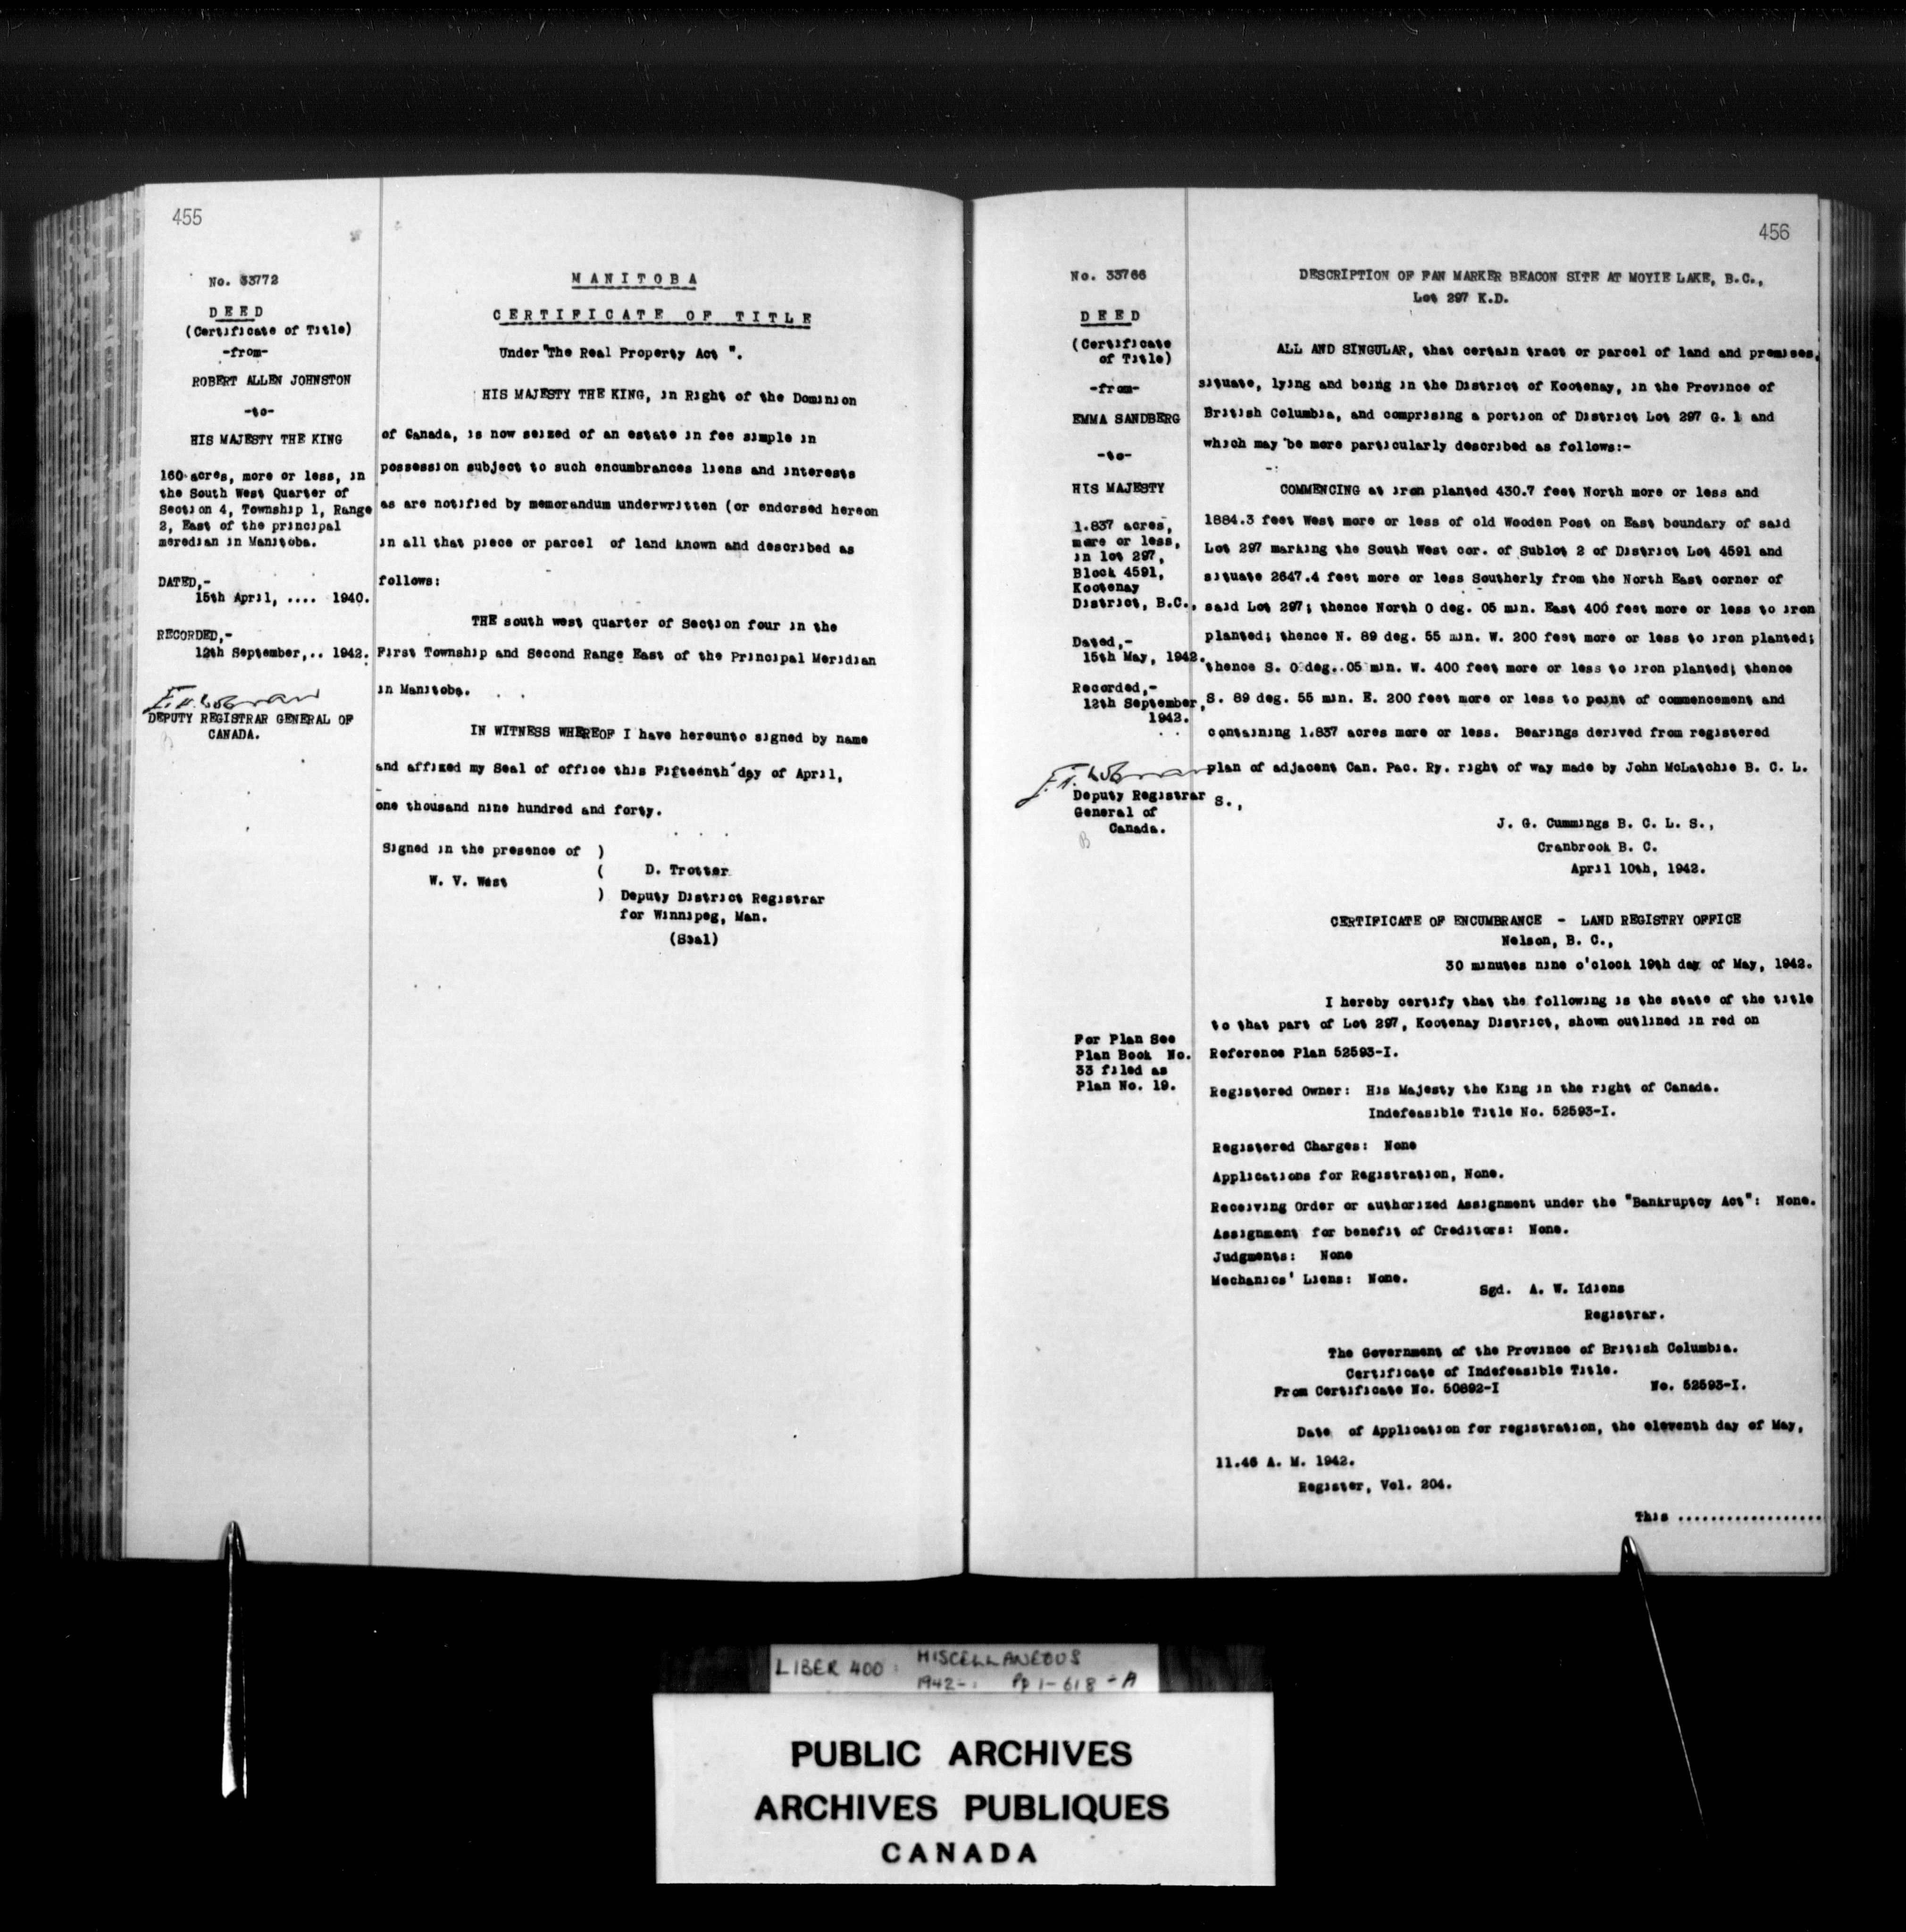 455
No. 33772
DEED
(Certificate of Title)
-from-
ROBERT ALLEN JOHNSTON
-to-
HIS MAJESTY THE KING
160 acres, more or less, in
the South West Quarter of
Section 4, Township 1, Range
2, East of the principal
meredian in Manitoba.
DATED,-
15th April, .... 1940.
RECORDED,-
12th September,.. 1942.
DEPUTY REGISTRAR GENERAL OF
CANADA.
MANITOBA
CERTIFICATE OF TITLE
Under "The Real Property Act ".
HIS MAJESTY THE KING, in Right of the Dominion
of Canada, is now seized of an estate in fee simple in
possession subject to such encumbrances liens and interests
as are notified by memorandum underwritten (or endorsed hereon
in all that piece or parcel of land known and described as
follows:
THE south west quarter of Section four in the
First Township and Second Range East of the Principal Meridian
in Manitoba.
IN WITNESS WHEREOF I have hereunto signed by name
and affixed my Seal of office this Fifteenth day of April,
one thousand nine hundred and forty.
Signed in the presence of )
W. V. West
( D. Trotter
) Deputy District Registrar
for Winnipeg, Man.
(Seal)
456
No. 33766
DEED
(Certificate
of Title)
-from-
EMMA SANDBERG
-to-
HIS MAJESTY
1.837 acres,
more or less,
in lot 297,
Block 4591,
Kootenay
District, B.C.,
Dated,-
15th May, 1942.
Recorded,-
12th September,
1942.
Deputy Registrar
General of
Canada.
For Plan See
Plan Book No.
33 filed as
Plan No. 19.
DESCRIPTION OF FAN MARKER BEACON SITE AT MOYIE LAKE, B.C.,
Lot 297 K.D.
ALL AND SINGULAR, that certain tract or parcel of land and premises,
situate, lying and being in the District of Kootenay, in the Province of
British Columbia, and comprising a portion of District Lot 297 G. 1 and
which may be more particularly described as follows:-
COMMENCING at iron planted 430.7 feet North more or less and
1884.3 feet West more or less of old Wooden Post on East boundary of said
Lot 297 marking the South West cor. of Sublot 2 of District Lot 4591 and
situate 2647.4 feet more or less Southerly from the North East corner of
said Lot 297; thence North 0 deg. 05 min. East 400 feet more or less to iron
planted; thence N. 89 deg. 55 min. W. 200 feet more or less to iron planted;
thence S. 0 deg. 05 min. W. 400 feet more or less to iron planted; thence
S. 89 deg. 55 min. E. 200 feet more or less to point of commencement and
containing 1.837 acres more or less. Bearings derived from registered
plan of adjacent Can. Pac. Ry. right of way made by John McLatchie B. C. L.
S.,
J. G. Cummings B. C. L. S.,
Cranbrook B. C.
April 10th, 1942.
CERTIFICATE OF ENCUMBRANCE - LAND REGISTRY OFFICE
Nelson, B. C.,
30 minutes nine o'clock 19th day of May, 1942.
I hereby certify that the following is the state of the title
to that part of Lot 297, Kootenay District, shown outlined in red on
Reference Plan 52593-I.
Registered Owner: His Majesty the King in the right of Canada.
Indefeasible Title No. 52593-I.
Registered Charges: None
Applications for Registration, None.
Receiving Order or authorized Assignment under the "Bankruptcy Act": None.
Assignment for benefit of Creditors: None.
Judgments: None
Mechanics' Liens: None.
Sgd. A. W. Idiens
Registrar.
The Government of the Province of British Columbia.
Certificate of Indefeasible Title.
From Certificate No. 50892-I No. 52593-I.
Date of Application for registration, the eleventh day of May,
11.46 A. M. 1942.
Register, Vol. 204.
This ..................
LIBER 400: MISCELLANEOUS
1942-. Pp 1-618-A
PUBLIC ARCHIVES
ARCHIVES PUBLIQUES
CANADA